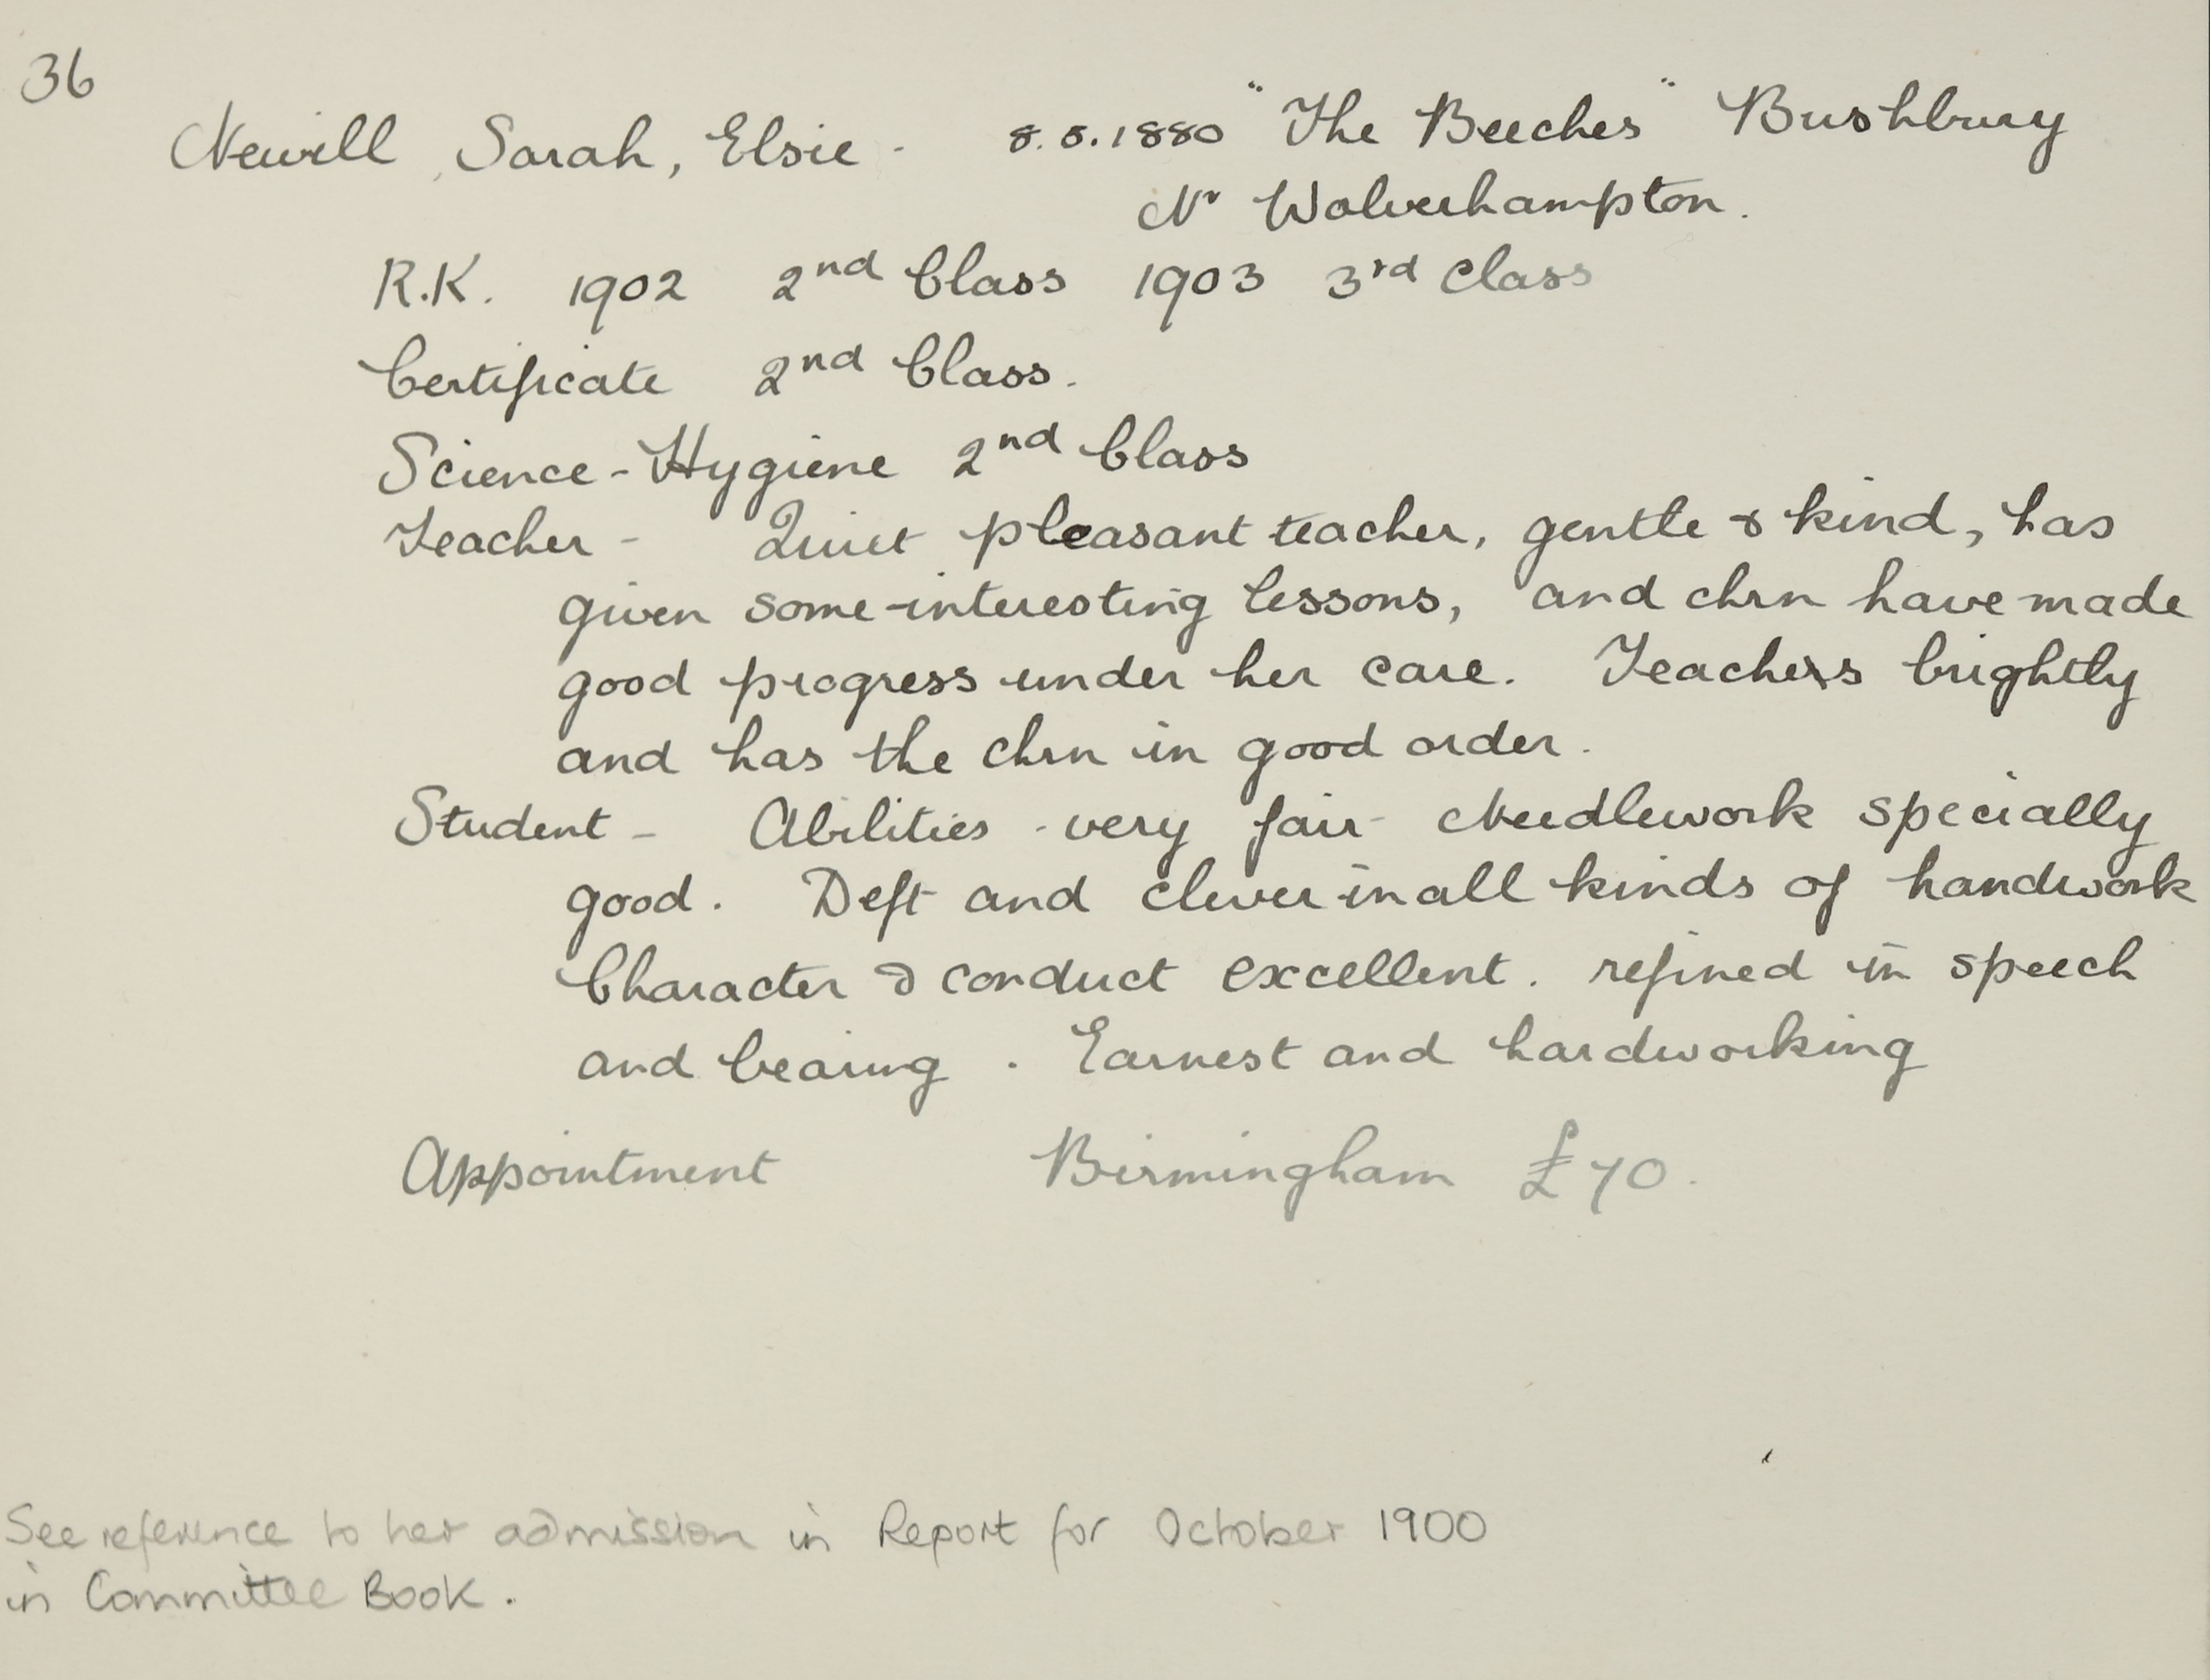 36
Newill, Sarah, Elsie - 8.8.1880 "The Beeches" Bushbury
Nr Wolverhampton.
R.K. 1902 2nd Class 1903 3rd Class
Certificate 2nd Class.
Science - Hygiene 2nd Class
Teacher - Quiet pleasant teacher, gentle & kind, has
given some interesting lessons, and chrn have made
good progress under her care. Teachers brightly
and has the chrn in good order.
Student - Abilities very fair Needlework specially
good. Deft and clever in all kinds of handwork
Character & conduct excellent. refined in speech
and bearing. Earnest and hardworking
Appointment Birmingham £70.
See reference to her admission in Report for October 1900
in Committee Book.